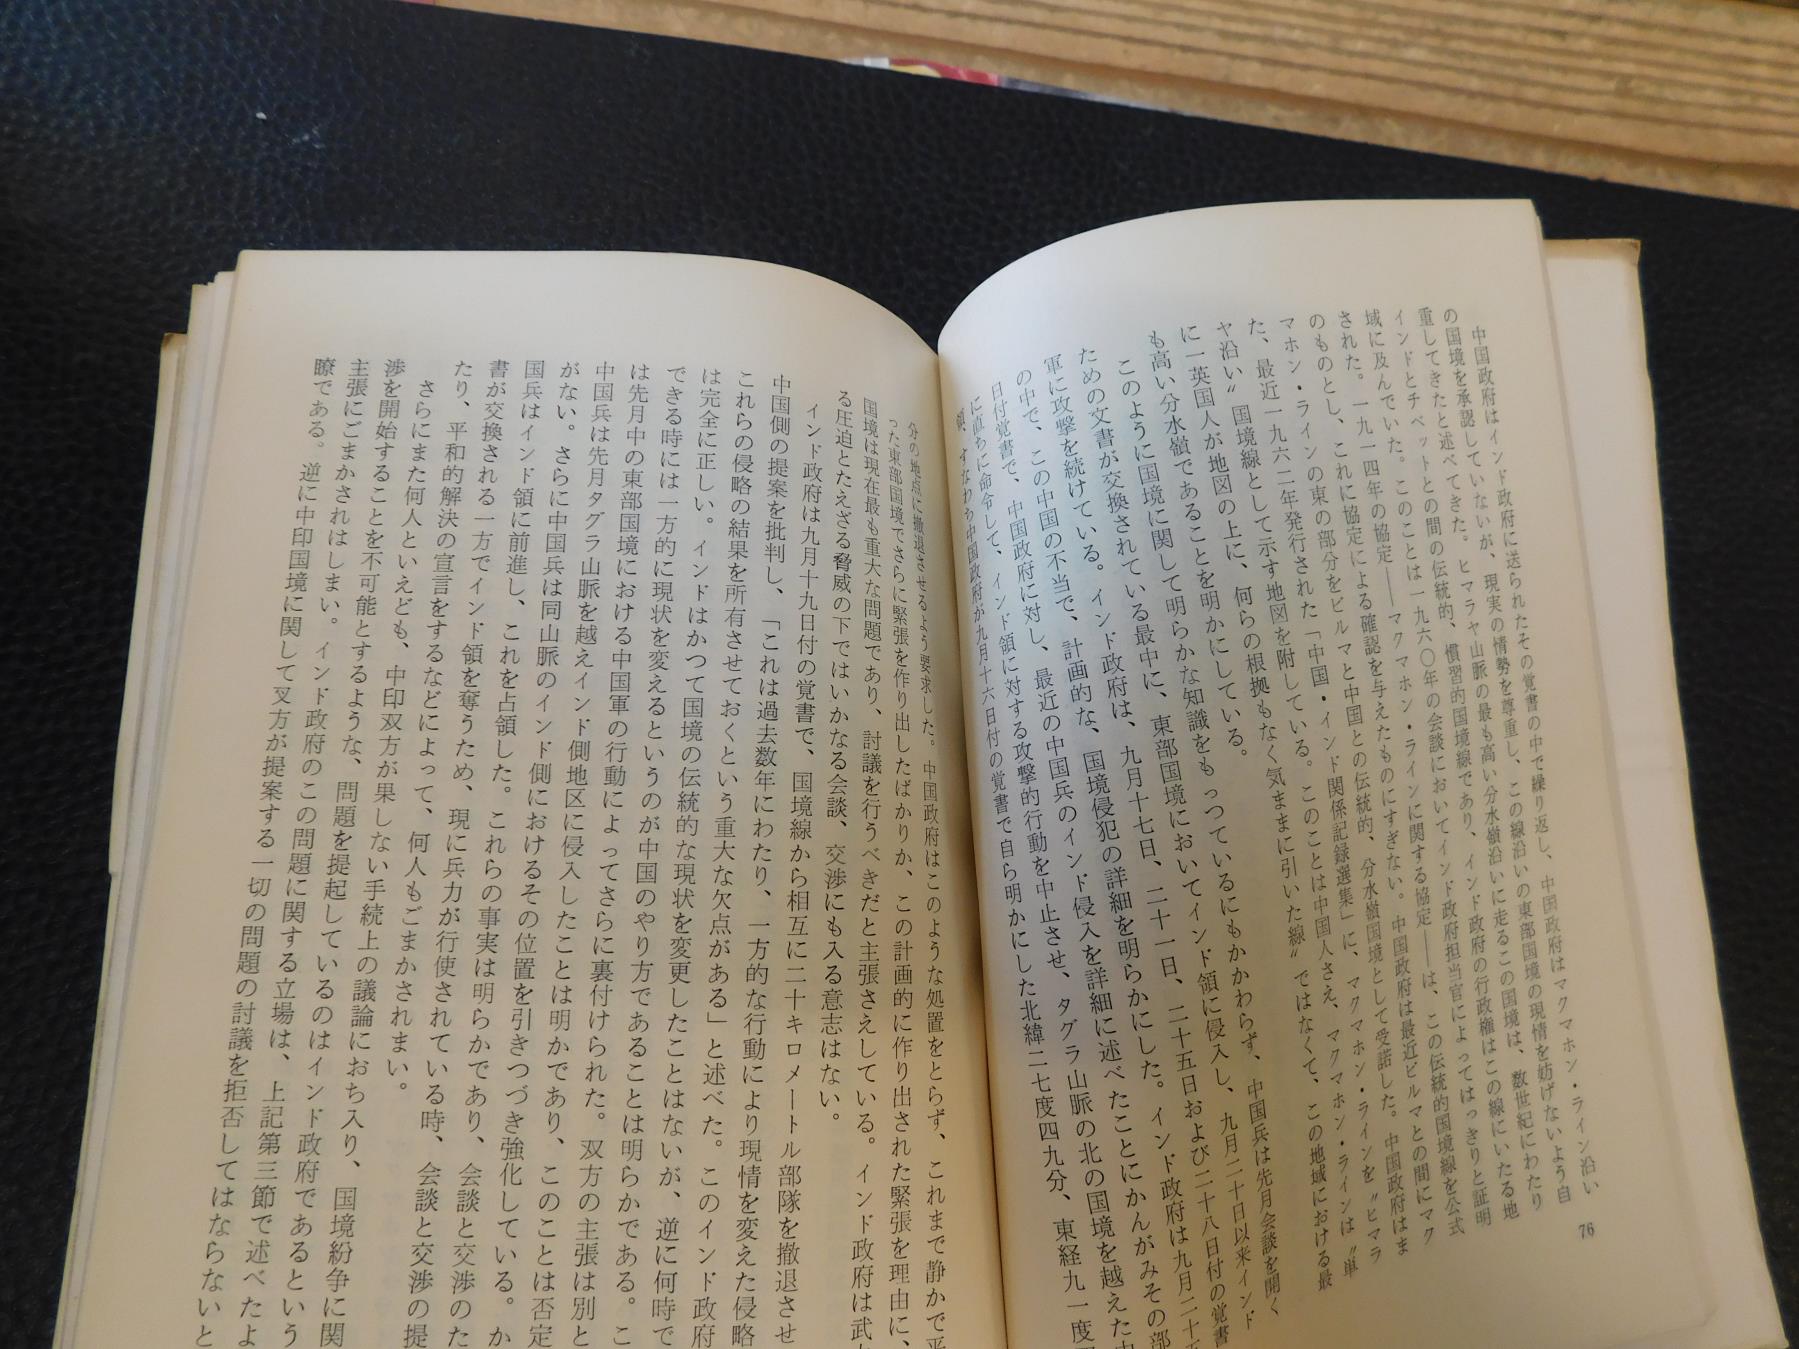 中国政府はインド政府に送られたその覚書の中で繰り返し、中国政府はマクマホン・ライン沿い
の国境を承認していないが、現実の情勢を尊重し、この線沿いの東部国境の現情を妨げないよう自
重してきたと述べてきた。ヒマラヤ山脈の最も高い分水嶺沿いに走るこの国境は、数世紀にわたり
インドとチベットとの間の伝統的、慣習的国境線であり、インド政府の行政権はこの線にいたる地
域に及んでいた。このことは一九六〇年の会談においてインド政府担当官によってはっきりと証明
された。一九一四年の協定――マクマホン・ラインに関する協定――は、この伝統的国境線を公式
のものとし、これに協定による確認を与えたものにすぎない。中国政府は最近ビルマとの間にマク
マホン・ラインの東の部分をビルマと中国との伝統的、分水嶺国境として受諾した。中国政府はま
た、最近一九六二年発行された「中国・インド関係記録選集」に、マクマホン・ラインを〃ヒマラ
ヤ沿い〃国境線として示す地図を附している。このことは中国人さえ、マクマホン・ラインは〃単
に一英国人が地図の上に、何らの根拠もなく気ままに引いた線〃ではなくて、この地域における最
も高い分水嶺であることを明かにしている。
このように国境に関して明らかな知識をもっているにもかかわらず、中国兵は先月会談を開く
ための文書が交換されている最中に、東部国境においてインド領に侵入し、九月二十日以来インド
軍に攻撃を続けている。インド政府は、九月十七日、二十一日、二十五日および二十八日付の覚書
の中で、この中国の不当で、計画的な、国境侵犯の詳細を明らかにした。インド政府は九月二十五
日付覚書で、中国政府に対し、最近の中国兵のインド侵入を詳細に述べたことにかんがみその部
に直ちに命令して、インド領に対する攻撃的行動を中止させ、タグラ山脈の北の国境を越えた
領、すなわち中国政府が九月十六日付の覚書で自ら明かにした北緯二七度四九分、東経九一度
76
分の地点に撤退させるよう要求した。中国政府はこのような処置をとらず、これまで静かで平
った東部国境でさらに緊張を作り出したばかりか、この計画的に作り出された緊張を理由に、
国境は現在最も重大な問題であり、討議を行うべきだと主張さえしている。インド政府は武
る圧迫とたえざる脅威の下ではいかなる会談、交渉にも入る意志はない。
インド政府は九月十九日付の覚書で、国境線から相互に二十キロメートル部隊を撤退させ
中国側の提案を批判し、「これは過去数年にわたり、一方的な行動により現情を変えた侵略
これらの侵略の結果を所有させておくという重大な欠点がある」と述べた。このインド政府
は完全に正しい。インドはかつて国境の伝統的な現状を変更したことはないが、逆に何時で
できる時には一方的に現状を変えるというのが中国のやり方であることは明らかである。こ
は先月中の東部国境における中国軍の行動によってさらに裏付けられた。双方の主張は別と
中国兵は先月タグラ山脈を越えインド側地区に侵入したことは明かであり、このことは否定
がない。さらに中国兵は同山脈のインド側におけるその位置を引きつづき強化している。か
国兵はインド領に前進し、これを占領した。これらの事実は明らかであり、会談と交渉のた
書が交換される一方でインド領を奪うため、現に兵力が行使されている時、会談と交渉の提
たり、平和的解決の宣言をするなどによって、何人もごまかされまい。
さらにまた何人といえども、中印双方が果しない手続上の議論におち入り、国境紛争に関
渉を開始することを不可能とするような、問題を提起しているのはインド政府であるという
主張にごまかされはしまい。インド政府のこの問題に関する立場は、上記第三節で述べたよ
瞭である。逆に中印国境に関して叉方が提案する一切の問題の討議を拒否してはならないと